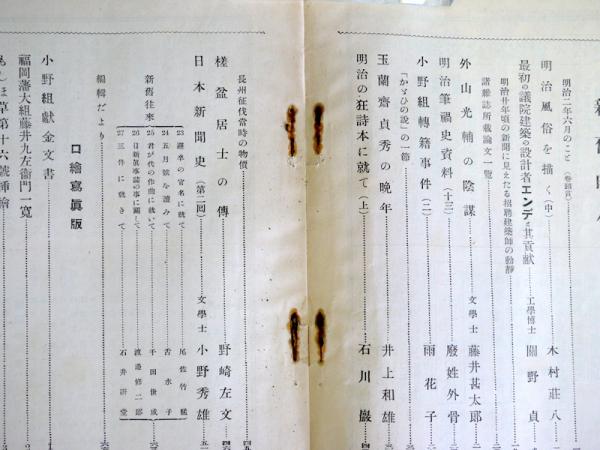 明治二年六月のこと（卷頭言）
明治風俗を描く（中） 木村莊八
最初の議院建築の設計者エンデと其貢獻 工學博士 關野貞
明治廿年頃の新聞に見えたる招聘建築師の動靜
諸雜誌所載論文一覽
外山光輔の陰謀 文學士 藤井甚太郎
明治筆禍史資料（十三） 廢姓外骨
小野組轉籍事件（二） 雨花子
「かゞひの說」の一節
玉蘭齋貞秀の晩年 井上和雄
明治の狂詩本に就て（上） 石川巖
長州征伐當時の物價
槎盆居士の傳 野崎左文
日本新聞史（第二回） 文學士 小野秀雄
新舊往來
23 選卒の官名に就て 尾佐竹猛
24 五月號を讀みて
25 君が代の作曲に就いて
26 日新眞事誌の事に關して 渡邊修二郎
27 三件に就きて 石井研堂
編輯だより
口繪寫眞版
小野組獻金文書
福岡藩大組藤井九左衞門一覽